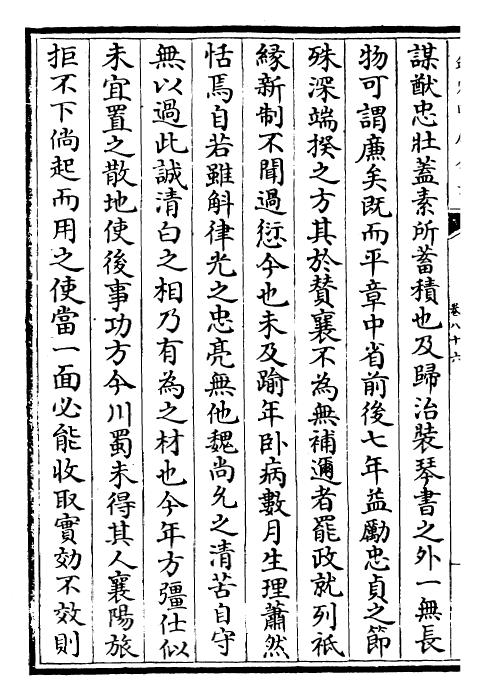 謀猷忠壯蓋素所蓄積也及歸治裝琴書之外一無長
物可謂廉矣既而平章中省前後七年益勵忠貞之節
殊深端揆之方其於賛襄不為無補邇者罷政就列祇
縁新制不聞過愆今也未及踰年卧病數月生理蕭然
恬焉自若雖斛律光之忠亮無他魏尚允之清苦自守
無以過此誠清白之相乃有為之材也今年方彊仕似
未宜置之散地使後事功方今川蜀未得其人襄陽旅
拒不下倘起而用之使當一面必能收取實効不效則
卷八十六